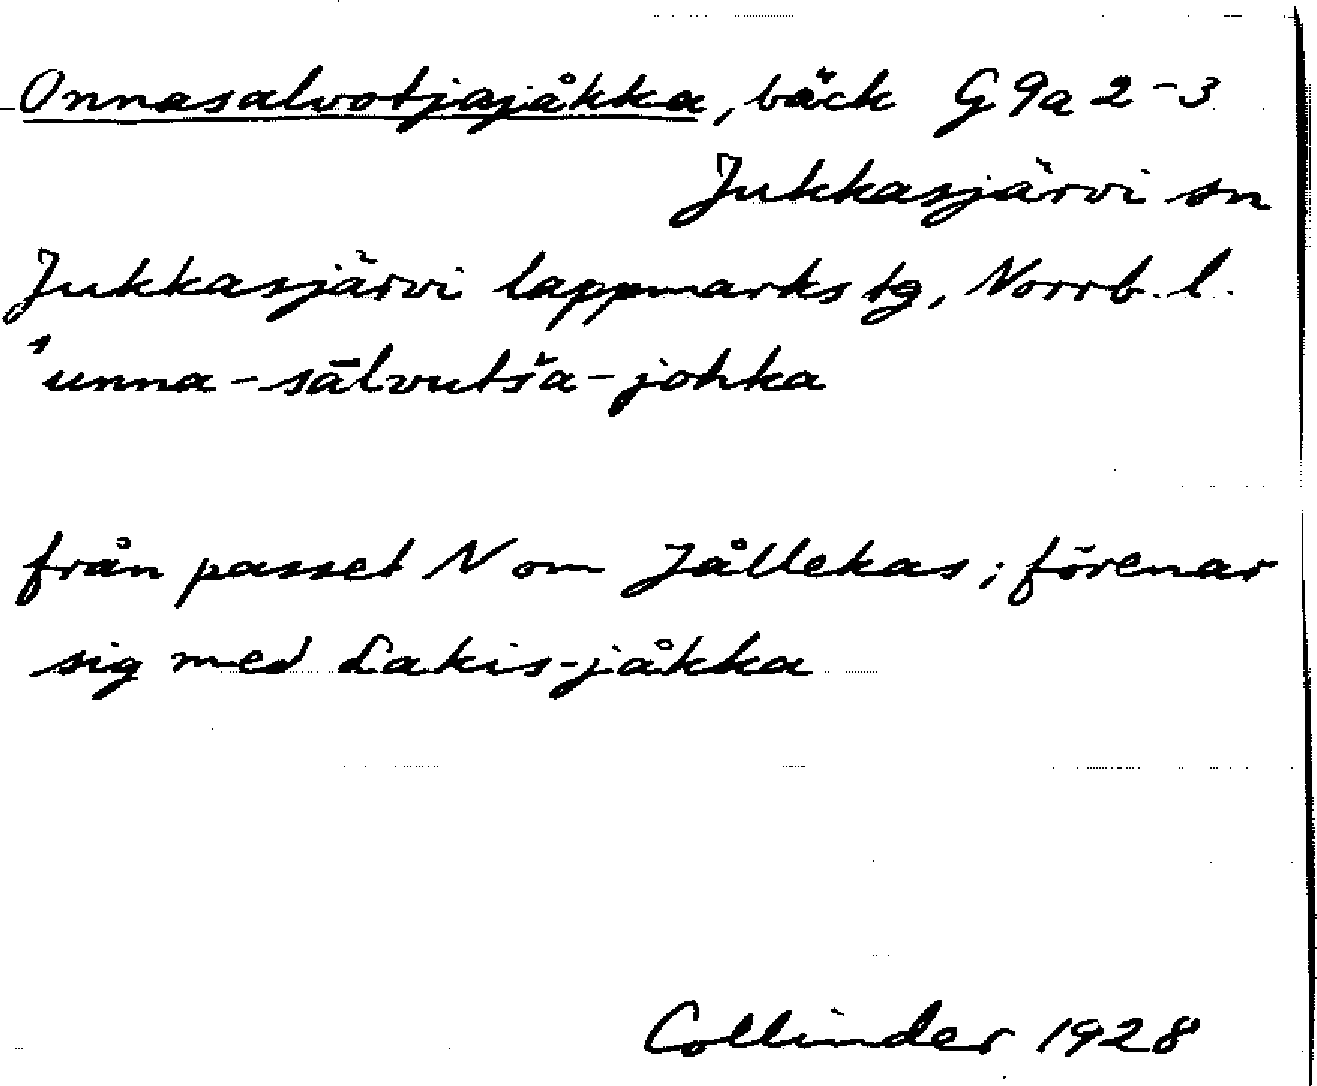 Onnasalvotjajåkka, bäck G 9a 2-3
Jukkasjärvi sn
Jukkasjärvi lappmarks tg, Norrb. l.
unna-sālvutša-johka
från passet N om Jållekas; förenar
sig med Lakis-jåkka
Collinder 1928